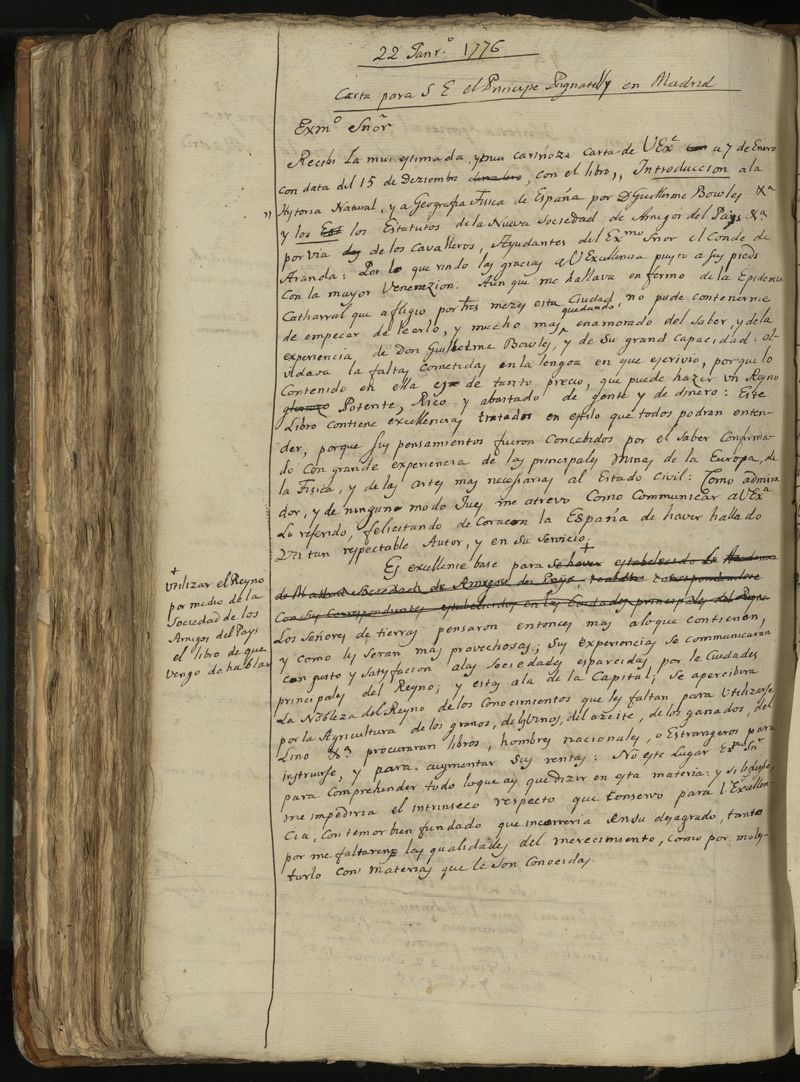 22 Janr.º 1776
Carta para S E el Principe Pignatelly en Madrid
Exmº Snõr
Recibi La mui estimada, y mui cariñoza carta de VExª a 7 de Enero
con data del 15 de Deziembre, con el libro,, Introduccion ala
Hystoria Natural, y a Geografia Fisica de España por Dn Guillerme Bowles &ª
y los los Estatutos dela Nueva Sociedad de Amigos del Pays &ª
por via de los Cavalleros, Ayudantes del Exmo Snor el Conde de
Aranda: Por lo que rindo las gracias a VExcellencia puesto a sus pieds
Con la mayor Venerazion. Aun que me hallava enfermo de la Epidemia
Catharral que afligio por tres mezes esta Ciudad, no pude contenerme
de empeçar de leerlo, y mucho mas quedando enamorado del saber, y dela
experiencia, de Don Guillelme Bowles, y de su grand capacidad. ol-
vidava la faltas cometidas en la lengoa en que escrivio, porque lo
Contenido en ella es de tanto precio, que puede hazer un Reyno
glorioso Potente, Rico y abastado de gente y de dinero: Este
Libro contiene excellencias tratados en estilo que todos podran enten-
der, porque sus pensamientos fueron Concebidos por el saber Confirma-
do con grande experiencia de las principales Minas de la Europa, de
la Fisica, y de las artes mas necessarias al Estado Civil: Como admira
dor, y de ninguno modo Jues me atrevo Como Communicar a VExª
Lo referido, felicitando de Coracon la España de haver hallado
Un tan respectable Autor, y en su servicio.
Es excellente base para + se haver establecido la Academia
de Madrid Sociedach de Amigos del Pays,
Con sus Correspondientes establecidos en las Ciudades principales del Reyno
+
Utilizar el Reyno
por medio de la
Sociedad de los
Amigos del Pays
el libro de que
vengo de hablar
Los Señores de tierras pensaron entonces mas alo que contienen,
y como les seran mas provechosas; Sus Experiencias se communicaran
con gusto y satysfacion alas Sociedades esparcidas, por le Ciudades
principales del Reyno; y estas ala de la Capital; se apercibira
La Nobleza del Reyno de los Conocimientos que les faltan para Utilizarse
por la Agricultura de los granos, de los vinos, del azeite, de los ganados, del
Lino &ª procuraran libros, hombres nacionales, o Estrangeros para
instruirse, y para augmentar sus rentas: No es este Lugar Exmo Snr
para Comprehender todo loque ay que dizir en esta materia: y
me impediria el intrinseco respecto que Conservo para VExcellen-
cia, Con temor bien fundado que incorreria ensu desagrado, tanto
por me faltaren las qualidades del merecimiento, como por moles-
tarlo Con materias que le son Conocidas.